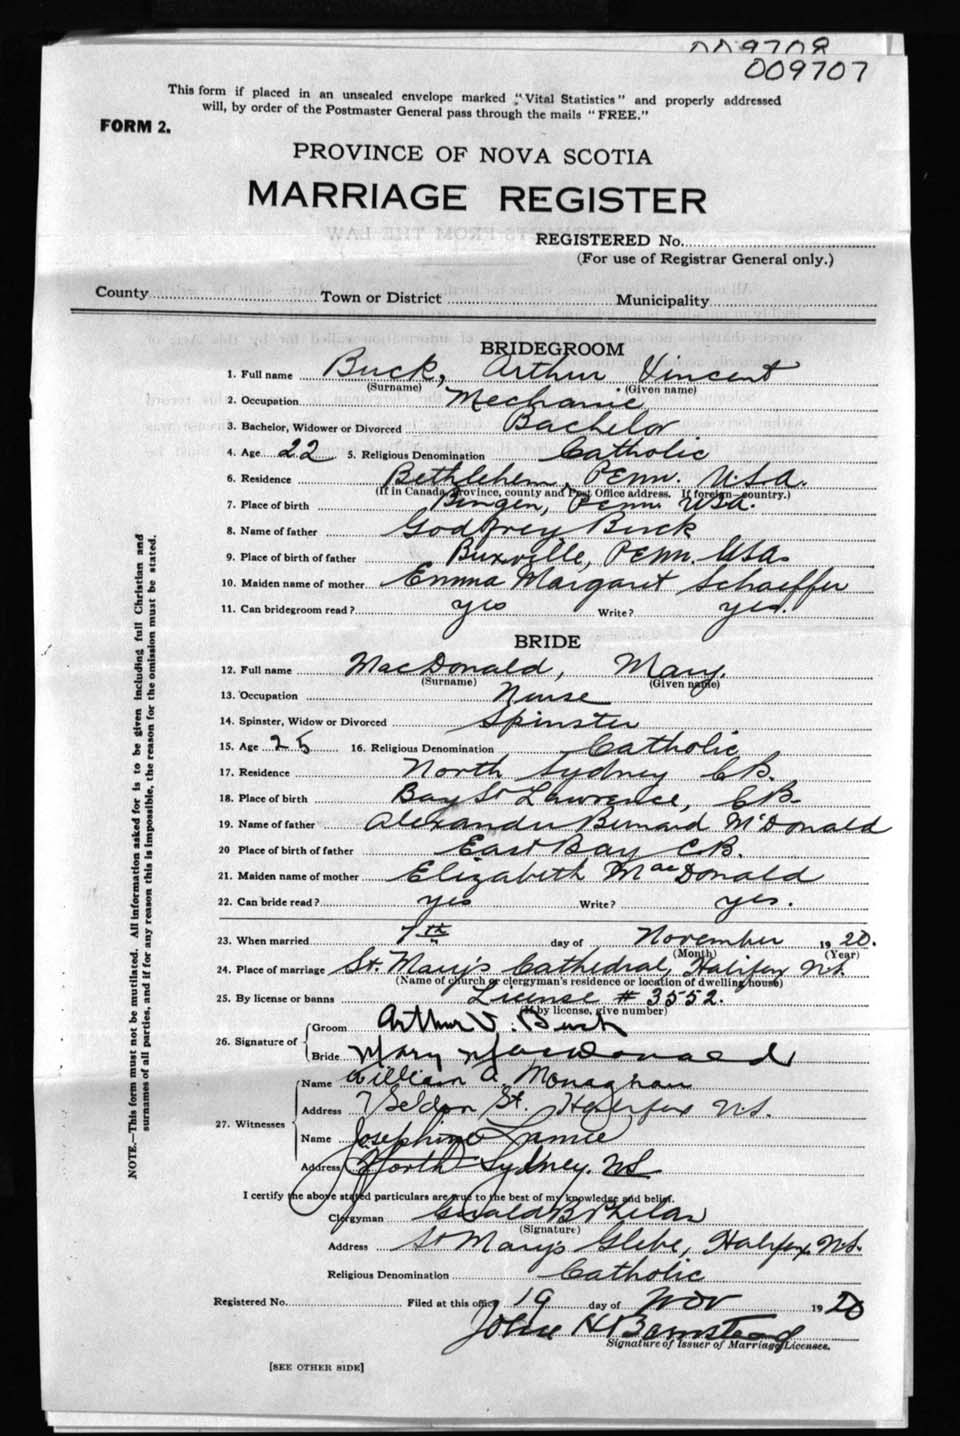 009708
009707
This form if placed in an unsealed envelope marked "Vital Statistics" and properly addressed
will, by order of the Postmaster General pass through the mails "FREE."
FORM 2.
PROVINCE OF NOVA SCOTIA
MARRIAGE REGISTER
REGISTERED No.
(For use of Registrar General only.)
County Town or District Municipality
BRIDEGROOM
1. Full name Buck, Arthur Vincent
(Surname) (Given name)
2. Occupation Mechanic
3. Bachelor, Widower or Divorced Bachelor
4. Age 22 5. Religious Denomination Catholic
6. Residence Bethlehem, Penn. U.S.A.
(If in Canada, Province, county and Post Office address. If foreign—country.)
7. Place of birth Bingen, Penn. USA.
8. Name of father Godfrey Buck
9. Place of birth of father Buxville, Penn. USA.
10. Maiden name of mother Emma Margaret Schaeffer
11. Can bridegroom read? yes Write? yes.
BRIDE
12. Full name MacDonald, Mary.
(Surname) (Given name)
13. Occupation Nurse
14. Spinster, Widow or Divorced Spinster
15. Age 25 16. Religious Denomination Catholic
17. Residence North Sydney C.B.
18. Place of birth Bay St Lawrence, C.B.
19. Name of father Alexander Bernard McDonald
20 Place of birth of father East Bay C.B.
21. Maiden name of mother Elizabeth MacDonald
22. Can bride read? yes Write? yes.
23. When married 7th day of November 1920.
(Month) (Year)
24. Place of marriage St. Mary's Cathedral, Halifax N.S.
(Name of church or clergyman's residence or location of dwelling house)
25. By license or banns License # 3552.
(If by license, give number)
26. Signature of
Groom Arthur V. Buck
Bride Mary MacDonald
27. Witnesses
Name William A. Monaghan
Address 7 Seldon St. Halifax N.S.
Name Josephine
Address North Sydney. NS
I certify the above stated particulars are true to the best of my knowledge and belief.
Clergyman Gerald B Phelan
(Signature)
Address St Mary's Glebe, Halifax, N.S.
Religious Denomination Catholic
Registered No. Filed at this office 19 day of Nov 1920
John H Barnstead
Signature of Issuer of Marriage Licenses.
[SEE OTHER SIDE]
NOTE.—This form must not be mutilated. All information asked for is to be given including full Christian and
surnames of all parties, and if for any reason this is impossible, the reason for the omission must be stated.